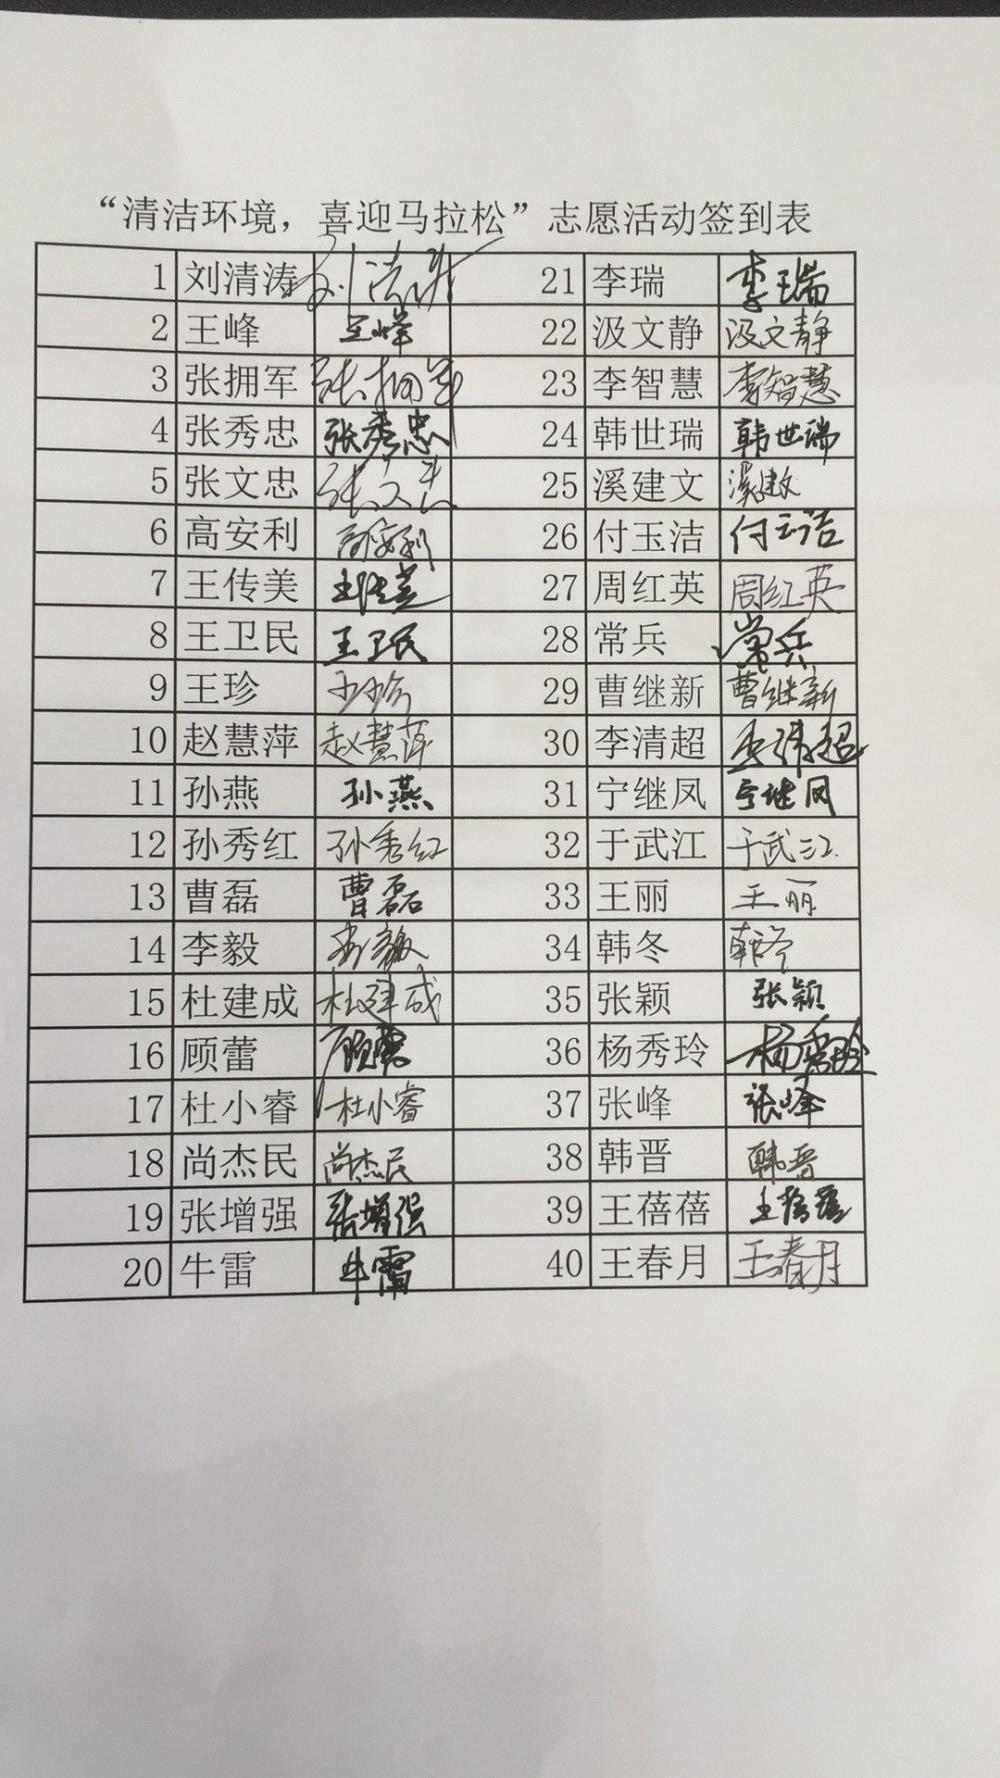 “清洁环境，喜迎马拉松”志愿活动签到表
1 刘清涛 刘清涛 21 李瑞 李瑞
2 王峰 王峰 22 汲文静 汲文静
3 张拥军 张拥军 23 李智慧 李智慧
4 张秀忠 张秀忠 24 韩世瑞 韩世瑞
5 张文忠 张文忠 25 溪建文 溪建文
6 高安利 高安利 26 付玉洁 付玉洁
7 王传美 王传美 27 周红英 周红英
8 王卫民 王卫民 28 常兵 常兵
9 王珍 王珍 29 曹继新 曹继新
10 赵慧萍 赵慧萍 30 李清超 李清超
11 孙燕 孙燕 31 宁继凤 宁继凤
12 孙秀红 孙秀红 32 于武江 于武江
13 曹磊 曹磊 33 王丽 王丽
14 李毅 李毅 34 韩冬 韩冬
15 杜建成 杜建成 35 张颖 张颖
16 顾蕾 顾蕾 36 杨秀玲 杨秀玲
17 杜小睿 杜小睿 37 张峰 张峰
18 尚杰民 尚杰民 38 韩晋 韩晋
19 张增强 张增强 39 王蓓蓓 王蓓蓓
20 牛雷 牛雷 40 王春月 王春月